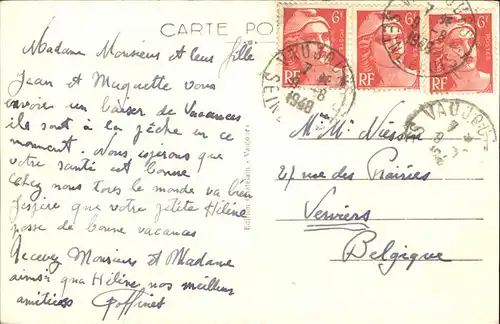 CARTE PO
Madame Monsieur et leur fille
Jean et Muguette vous
envoie un baiser de Vacances
ils sont à la pêche en ce
moment. Nous espérons que
votre santé est bonne
Chez nous tous le monde va bien
J'espère que votre petite Hélène
posse de bonne vacances
Recevez Monsieur et Madame
ainsi qua Hélène nos meilleurs
amitiées Goffinet
6F 6F 6F
RF RF RF
VAUJOURS
8
1948
SEINE
M. Mme
27 rue des Prairies
Verviers
Belgique
Edition